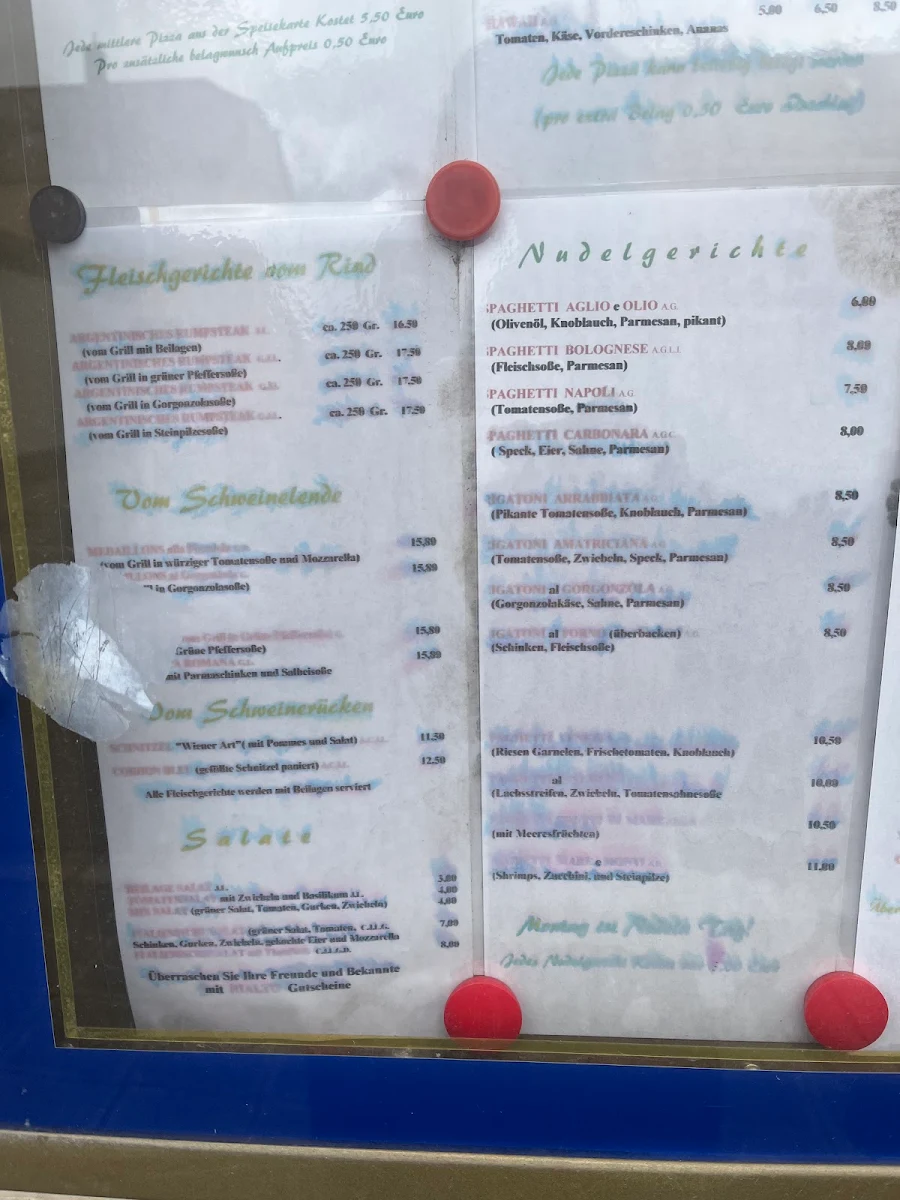 Jede mittlere Pizza aus der Speisekarte Kostet 5,50 Euro
Pro zusätzliche belagwunsch Aufpreis 0,50 Euro
HAWAII A.G. 5.00 6,50 8,50
Tomaten, Käse, Vordereschinken, Ananas
Jede Pizza kann
(pro extra Belag 0,50 Euro
Fleischgerichte vom Rind
ARGENTINISCHES RUMPSTEAK ca. 250 Gr. 16.50
(vom Grill mit Beilagen)
ARGENTINISCHES RUMPSTEAK ca. 250 Gr. 17,50
(vom Grill in grüner Pfeffersoße)
ARGENTINISCHES RUMPSTEAK ca. 250 Gr. 17,50
(vom Grill in Gorgonzolasoße)
ARGENTINISCHES RUMPSTEAK ca. 250 Gr. 17,50
(vom Grill in Steinpilzesoße)
Vom Schweinelende
MEDAILLONS alla 15,80
(vom Grill in würziger Tomatensoße und Mozzarella)
LLONS al 15,80
in Gorgonzolasoße)
15,80
Grüne Pfeffersoße)
A ROMANA 15,80
mit Parmaschinken und Salbeisoße
Vom Schweinerücken
SCHNITZEL "Wiener Art"( mit Pommes und Salat) 11,50
CORDON BLEU (gefüllte Schnitzel paniert) 12,50
Alle Fleischgerichte werden mit Beilagen serviert
Salate
BEILAGE SALAT J.L. 3,00
mit Zwiebeln und Basilikum J.L. 4,00
MIX SALAT (grüner Salat, Tomaten, Gurken, Zwiebeln) 4,00
(grüner Salat, Tomaten, 7,00
Schinken, Gurken, Zwiebeln, gekochte Eier und Mozzarella
8,00
Überraschen Sie Ihre Freunde und Bekannte
mit RIALTO Gutscheine
Nudelgerichte
SPAGHETTI AGLIO e OLIO A.G. 6,80
(Olivenöl, Knoblauch, Parmesan, pikant)
SPAGHETTI BOLOGNESE A.G.L.J. 8,00
(Fleischsoße, Parmesan)
SPAGHETTI NAPOLI A.G 7,50
(Tomatensoße, Parmesan)
SPAGHETTI CARBONARA A.G.C 8,00
( Speck, Eier, Sahne, Parmesan)
IGATONI ARRABBIATA 8,50
(Pikante Tomatensoße, Knoblauch, Parmesan)
IGATONI AMATRICIANA 8,50
(Tomatensoße, Zwiebeln, Speck, Parmesan)
IGATONI al GORGONZOLA 8,50
(Gorgonzolakäse, Sahne, Parmesan)
IGATONI al FORNO (überbacken) 8,50
(Schinken, Fleischsoße)
10,50
(Riesen Garnelen, Frischetomaten, Knoblauch)
al 10,00
(Lachsstreifen, Zwiebeln, Tomatensahnesoße
10,50
(mit Meeresfrüchten)
e 11,00
(Shrimps, Zucchini, und Steinpilze)
Montag ist Nudeln Tag!
Jedes Nudelgericht